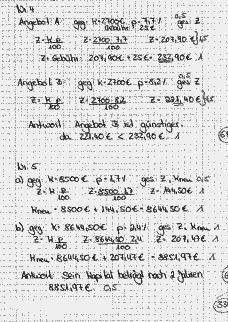 Nr. 4
Angebot A geg: K=2700€ p=7,7% ges: Z
Gebühr: 25€
Z=K·p/100 Z=2700·7,7/100 Z=207,90€
Z+Gebühr: 207,90€+25€=232,90€ 1
Angebot B: geg: K=2700€ p=8,2% ges: Z
Z=K·p/100 Z=2700·8,2/100 Z=221,40€
Antwort: Angebot B ist günstiger,
da 221,40€ < 232,90€ 1
Nr. 5
a) geg: K=8500€ p=1,7% ges: Z, Kneu 0,5
Z=K·p/100 Z=8500·1,7/100 Z=144,50€ 1
Kneu = 8500€ + 144,50€ = 8644,50€ 1
b) geg: K=8644,50€ p=2,4% ges: Z, Kneu 1
Z=K·p/100 Z=8644,50·2,4/100 Z=207,47€ 1
Kneu = 8644,50€ + 207,47€ = 8851,97€ 1
Antwort: Sein Kapital beträgt nach 2 Jahren
8851,97€. 0,5